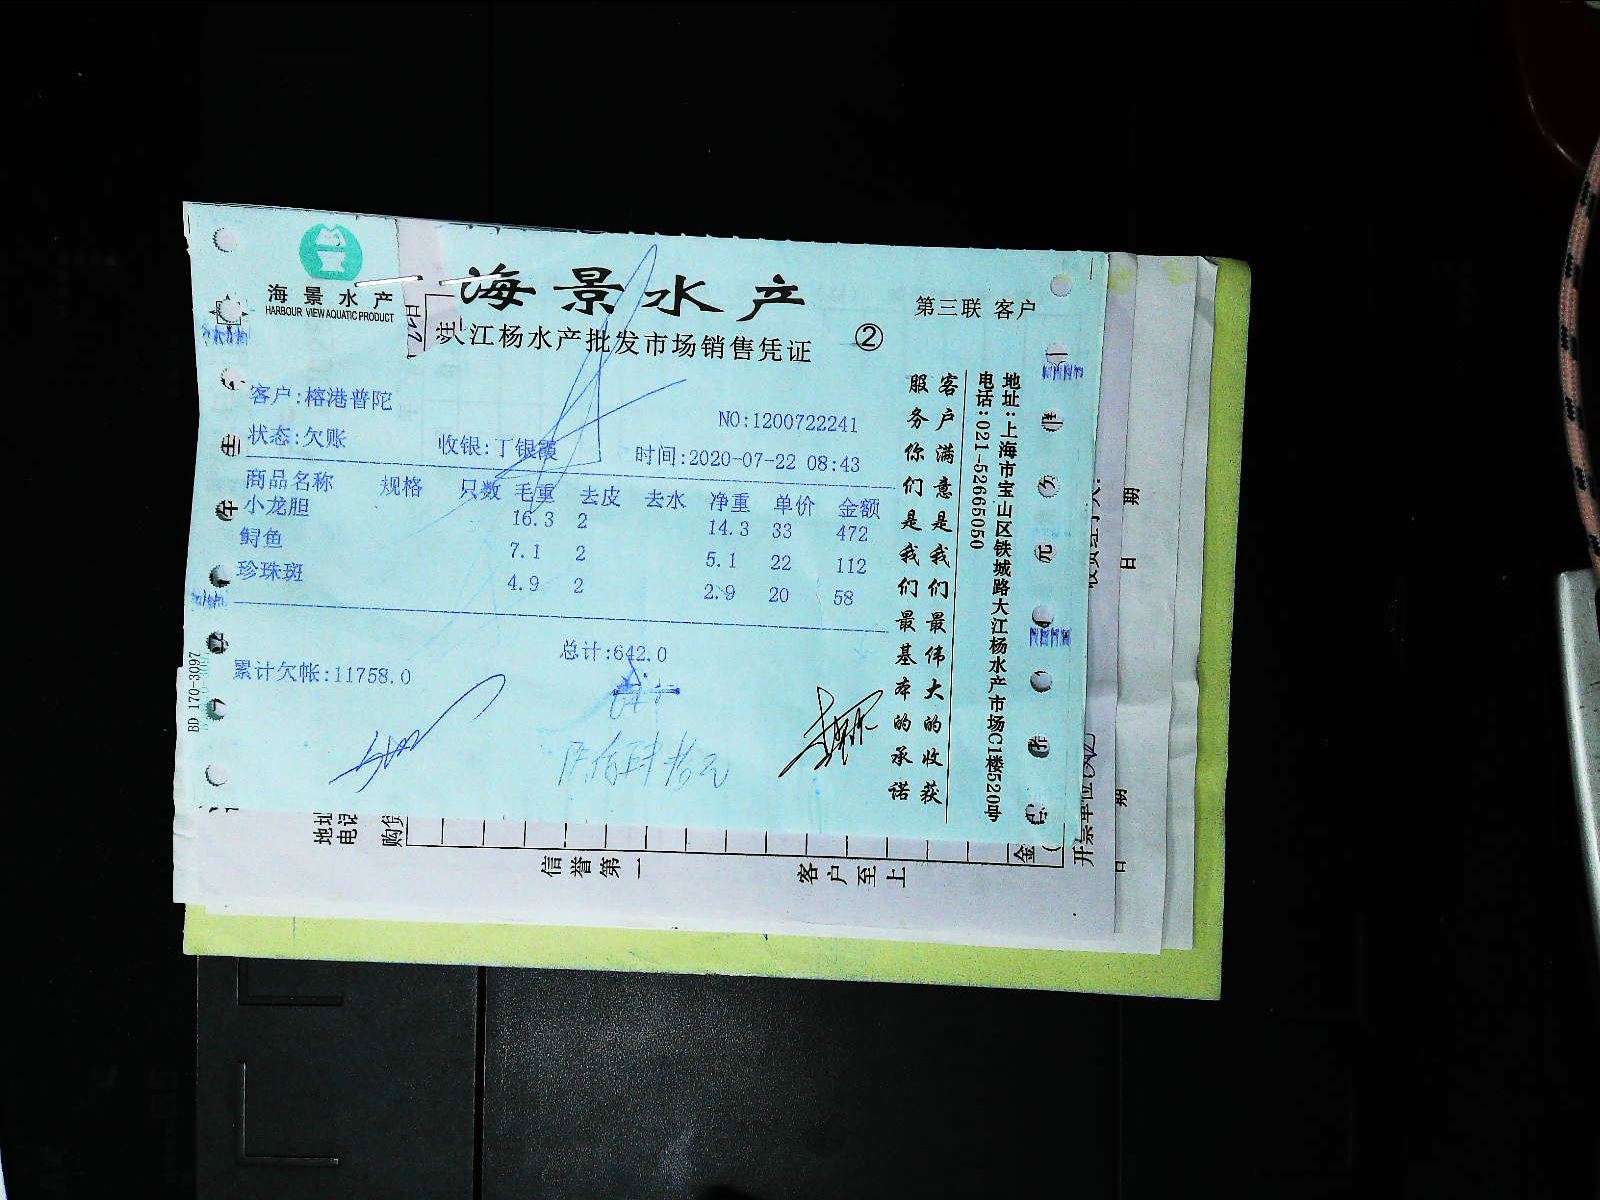 海景水产
HARBOUR VIEW AQUATIC PRODUCT
海景水产
第三联 客户
江杨水产批发市场销售凭证 ②
客户:榕港普陀
NO:1200722241
状态:欠账 收银:丁银霞 时间:2020-07-22 08:43
商品名称 规格 只数 毛重 去皮 去水 净重 单价 金额
小龙胆 16.3 2 14.3 33 472
鲟鱼 7.1 2 5.1 22 112
珍珠斑 4.9 2 2.9 20 58
总计:642.0
累计欠帐:11758.0
客户满意是我们最伟大的收获
服务你们是我们最基本的承诺
地址:上海市宝山区铁城路大江杨水产市场C1楼520号
电话:021-52665050
BD 170-3097
地址
电话
购货
信誉第一
客户至上
金
开票单位
日 期
日 期